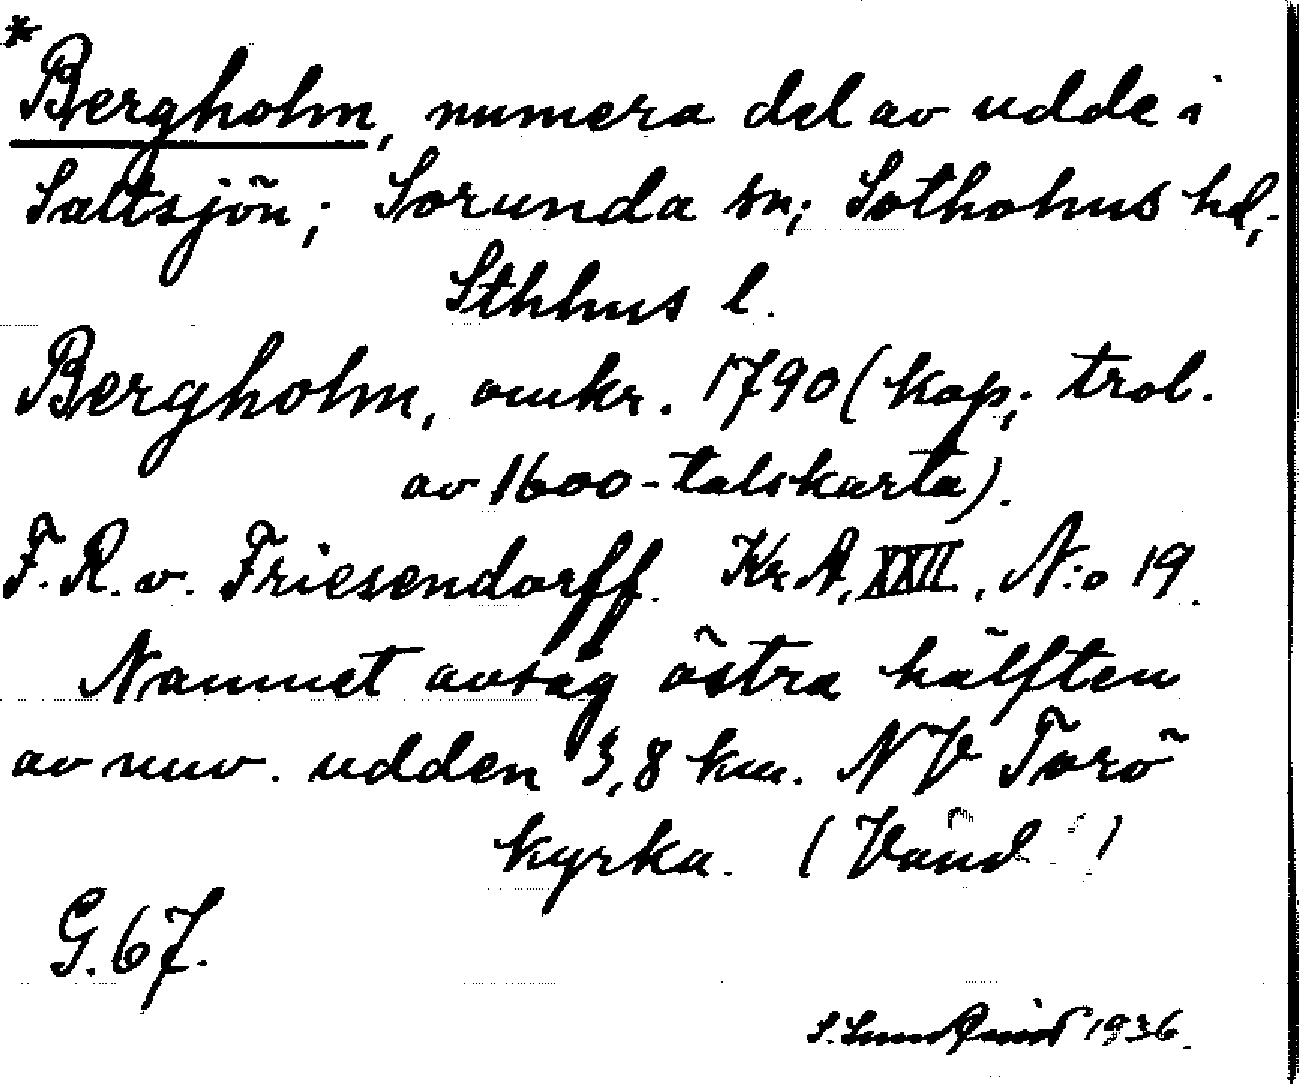 *Bergholm, numera del av udde i
Saltsjön; Sorunda sn; Sotholms hd;
Sthlms l.
Bergholm, omkr. 1790 (kop; trol.
av 1600-talskarta).
F.R. v. Friesendorff. Kr.A, XXII, N:o 19.
Namnet avsåg östra hälften
av nuv. udden 3,8 km. NV Torö
kyrka. (Vänd!)
G. 67.
S. Lundqvist 1936.